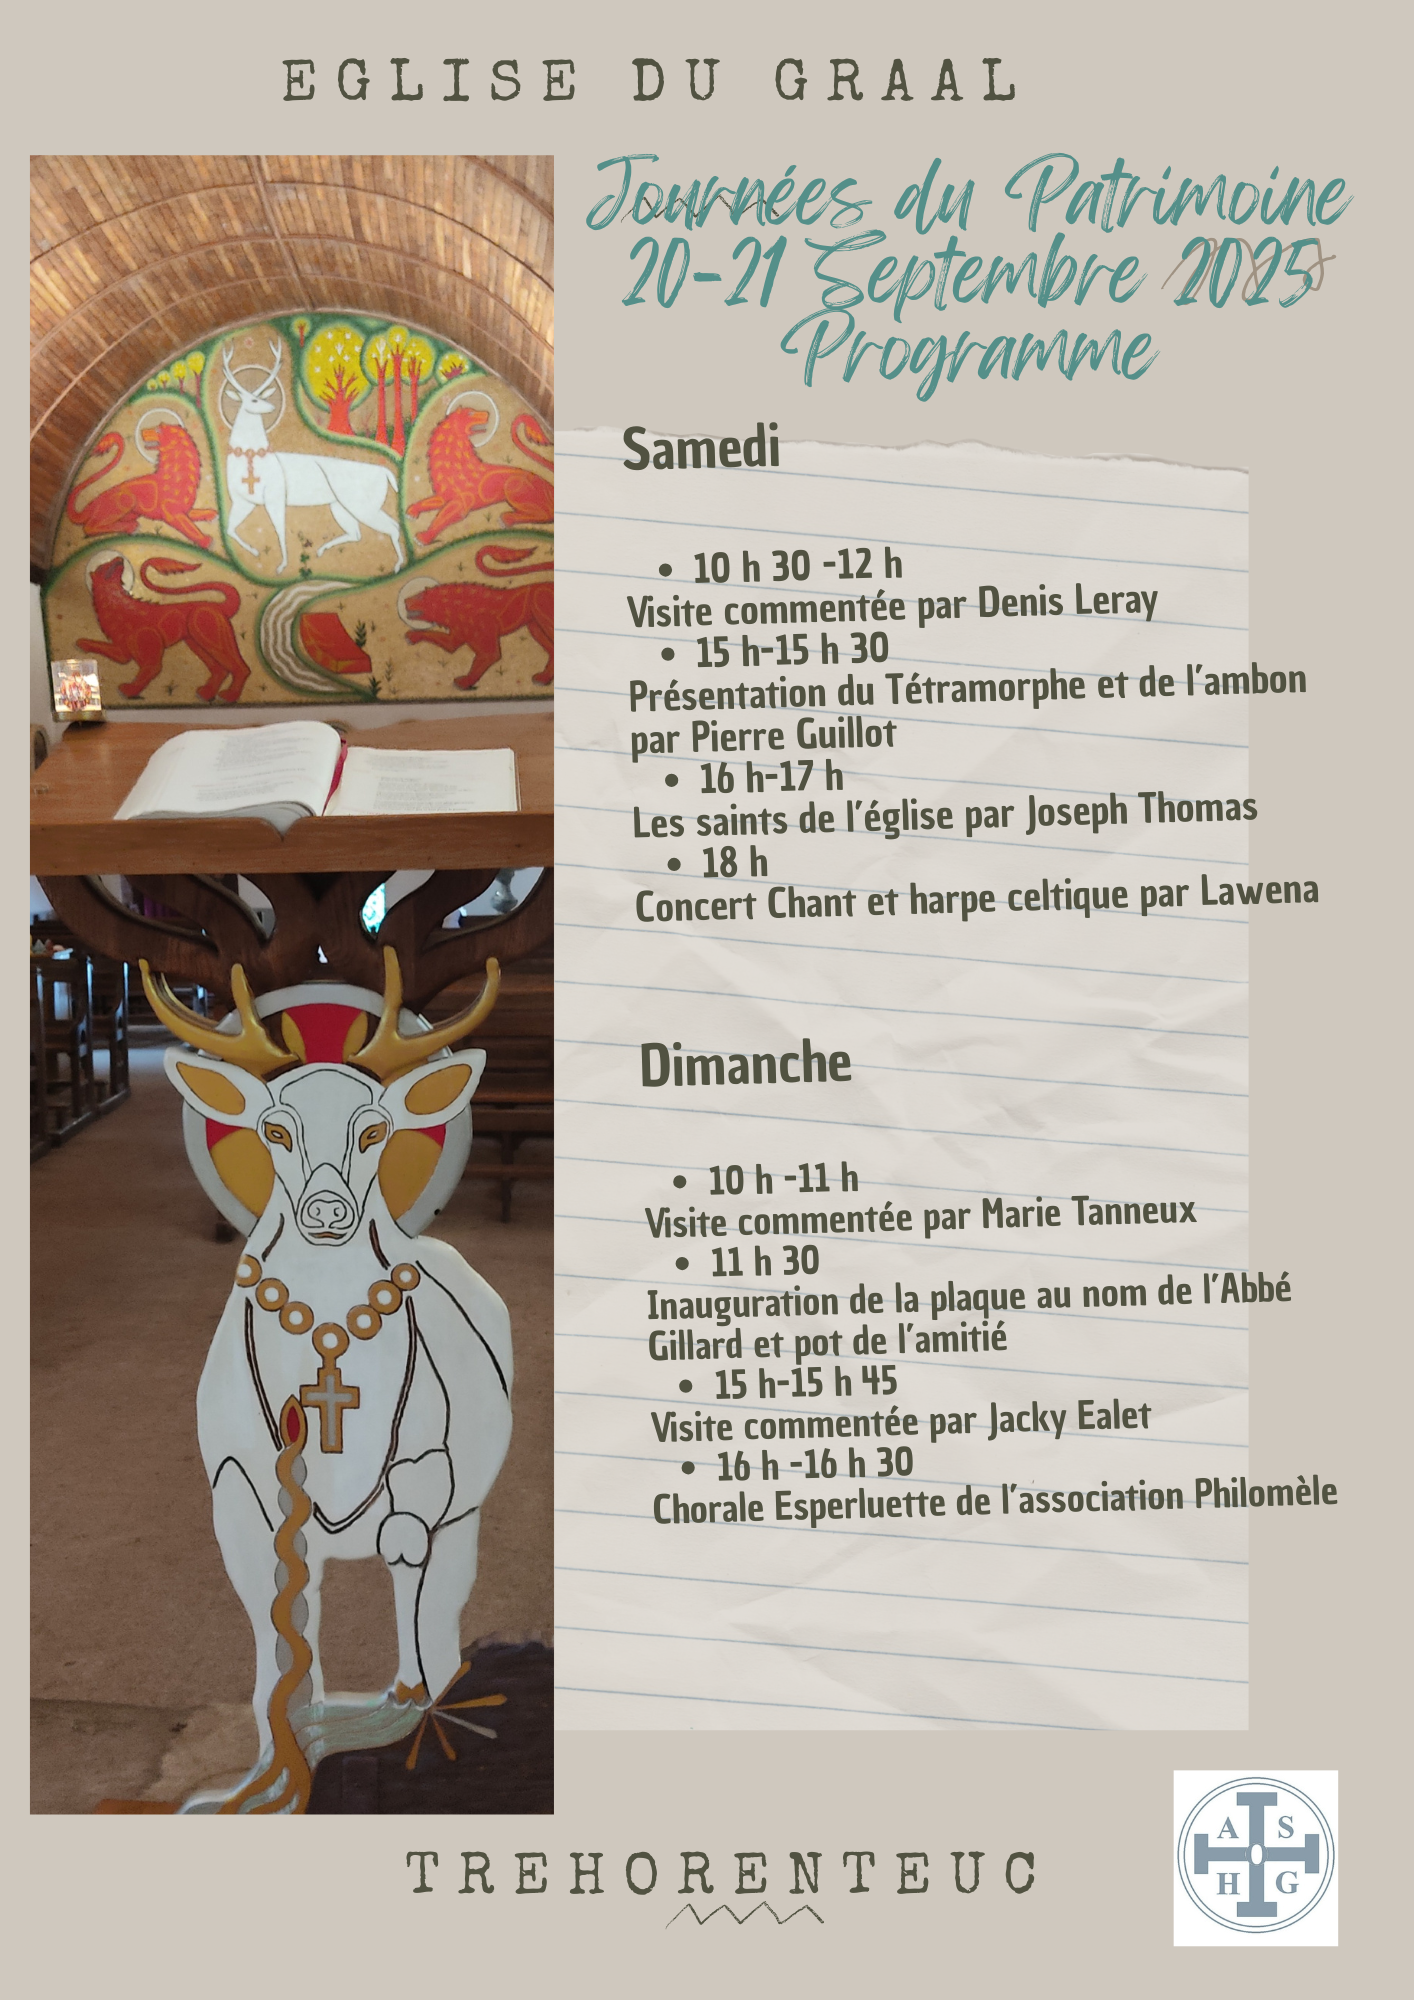 EGLISE DU GRAAL
Journées du Patrimoine
20-21 Septembre 2025
Programme
Samedi
• 10 h 30 -12 h
Visite commentée par Denis Leray
• 15 h-15 h 30
Présentation du Tétramorphe et de l'ambon
par Pierre Guillot
• 16 h-17 h
Les saints de l'église par Joseph Thomas
• 18 h
Concert Chant et harpe celtique par Lawena
Dimanche
• 10 h -11 h
Visite commentée par Marie Tanneux
• 11 h 30
Inauguration de la plaque au nom de l'Abbé
Gillard et pot de l'amitié
• 15 h-15 h 45
Visite commentée par Jacky Ealet
• 16 h -16 h 30
Chorale Esperluette de l'association Philomèle
TREHORENTEUC
A S
H G